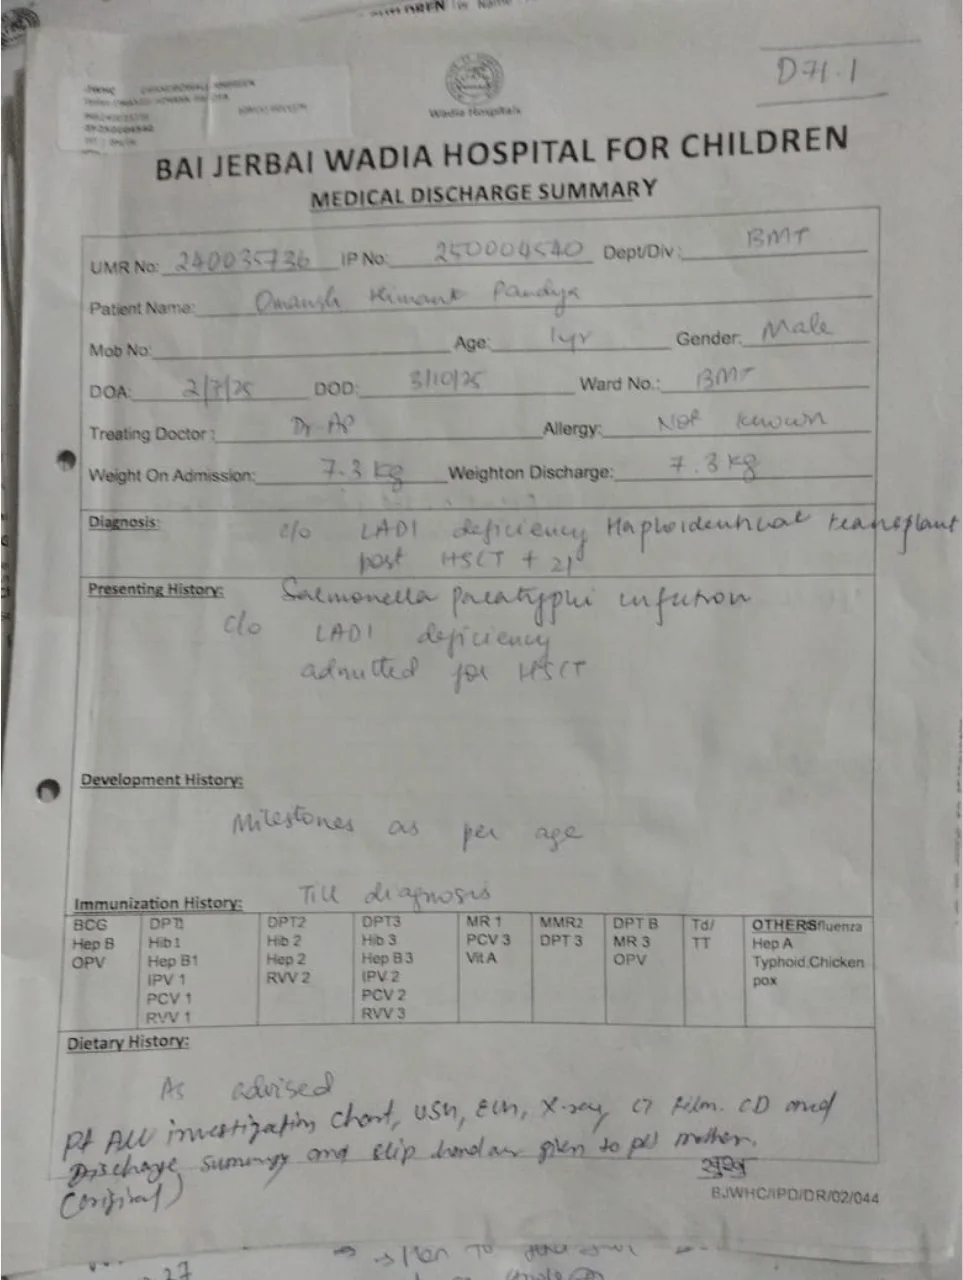 D71.1
Wadia Hospitals
BAI JERBAI WADIA HOSPITAL FOR CHILDREN
MEDICAL DISCHARGE SUMMARY
UMR No: 240035736 IP No: 250004540 Dept/Div: BMT
Patient Name: Omansh Himant Pandya
Mob No: Age: 1yr Gender: Male
DOA: 2/7/25 DOD: 3/10/25 Ward No.: BMT
Treating Doctor: Dr AP Allergy: Not known
Weight On Admission: 7.3 kg Weighton Discharge: 7.3 kg
Diagnosis: c/o LAD1 deficiency Haploidentical transplant
post HSCT + 21
Presenting History: Salmonella paratyphi infection
c/o LAD1 deficiency
admitted for HSCT
Development History:
Milestones as per age
Immunization History: Till diagnosis
BCG DPT1 DPT2 DPT3 MR 1 MMR2 DPT B Td/ OTHERSfluenza
Hep B Hib1 Hib 2 Hib 3 PCV 3 DPT 3 MR 3 TT Hep A
OPV Hep B1 Hep 2 Hep B3 Vit A OPV Typhoid,Chicken
IPV 1 RVV 2 IPV 2 pox
PCV 1 PCV 2
RVV 1 RVV 3
Dietary History:
As advised
Pt All investigation Chart, USG, ECG, X-ray, CT Film. CD and
Discharge summary and slip handover given to pt mother.
(original)
BJWHC/IPD/DR/02/044